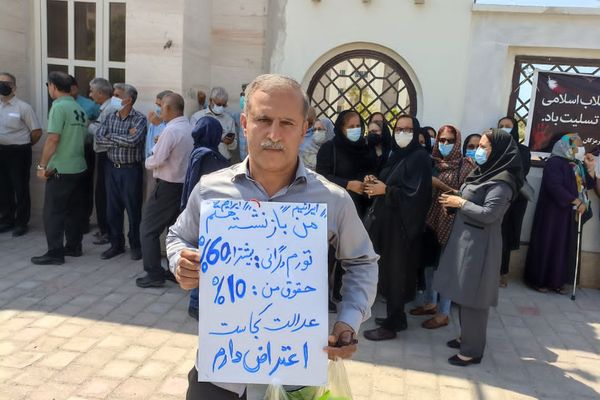 ایرانیم // ایرانیم
من بازنشسته هستم
تورم و گرانی: بیشتر از 60%
حقوق من: 10%
عدالت کجاست
اعتراض دارم
لاب اسلامی
تسلیت باد.